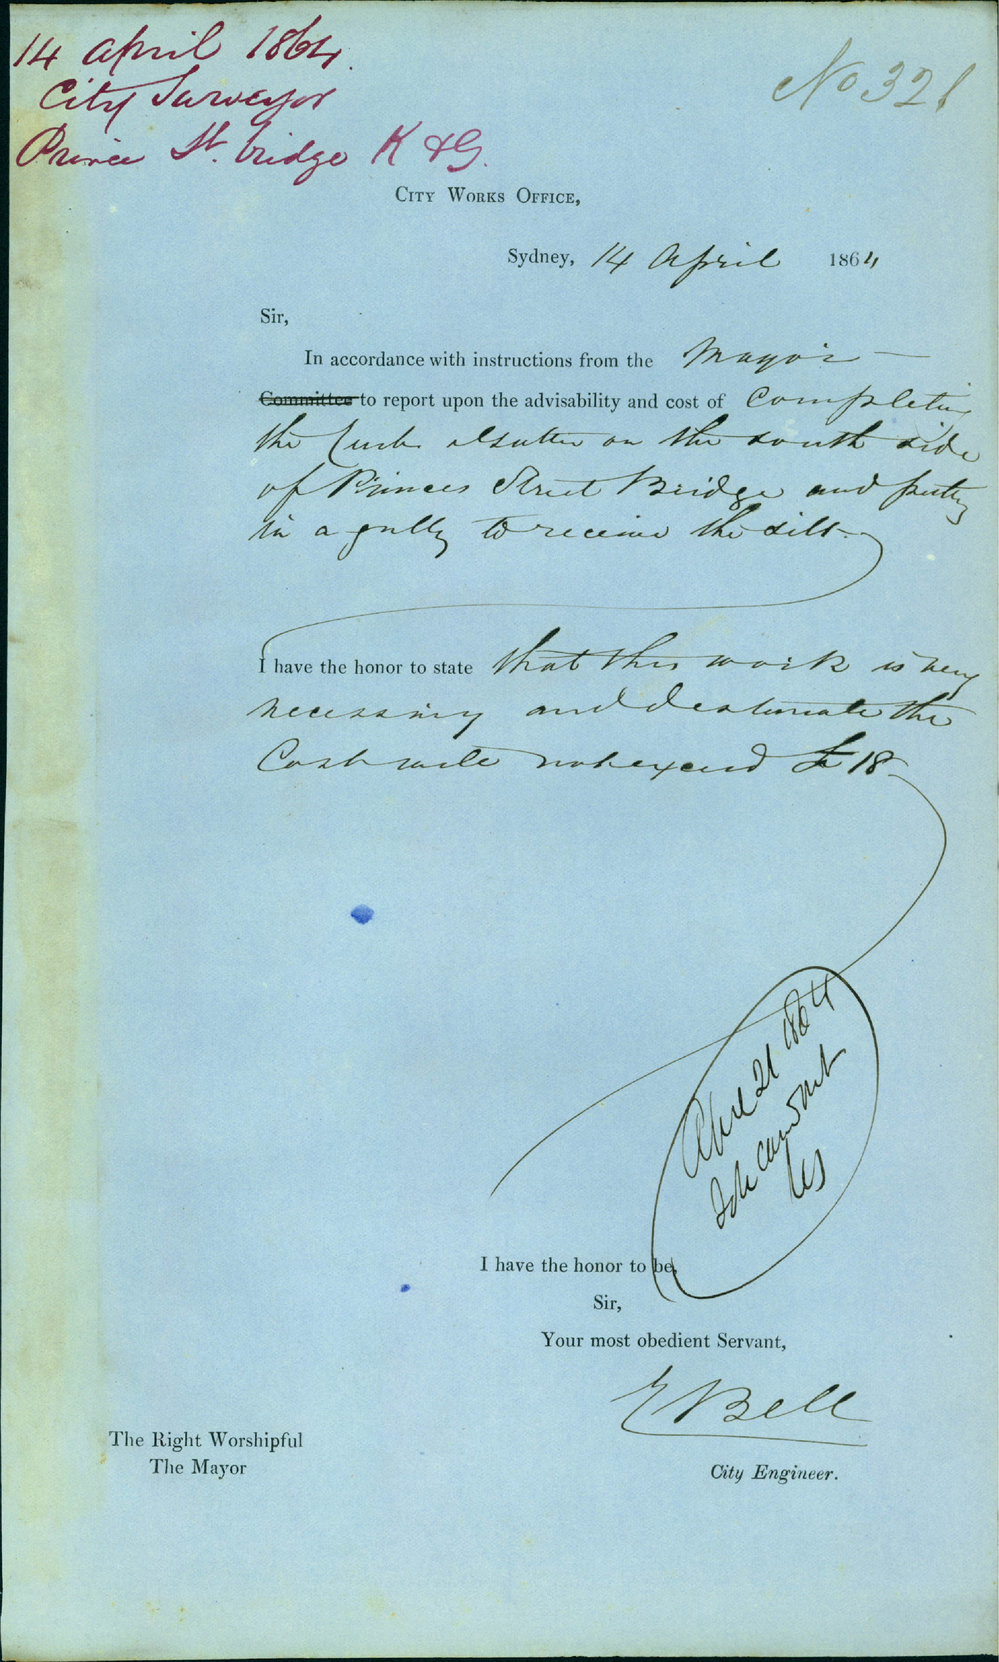 14 April 1864.
City Surveyor
Prince St. bridge K & G.
No 321
City Works Office,
Sydney, 14 April 1864
Sir,
In accordance with instructions from the Mayor
Committee to report upon the advisability and cost of Completing
the Curb & Gutter on the south side
of Princes Street Bridge and putting
in a gully to receive the silt.
I have the honor to state that this work is very
necessary and I estimate the
Cost will not exceed £18
April 21 1864
I have the honor to be,
Sir,
Your most obedient Servant,
E Bell
The Right Worshipful
The Mayor
City Engineer.